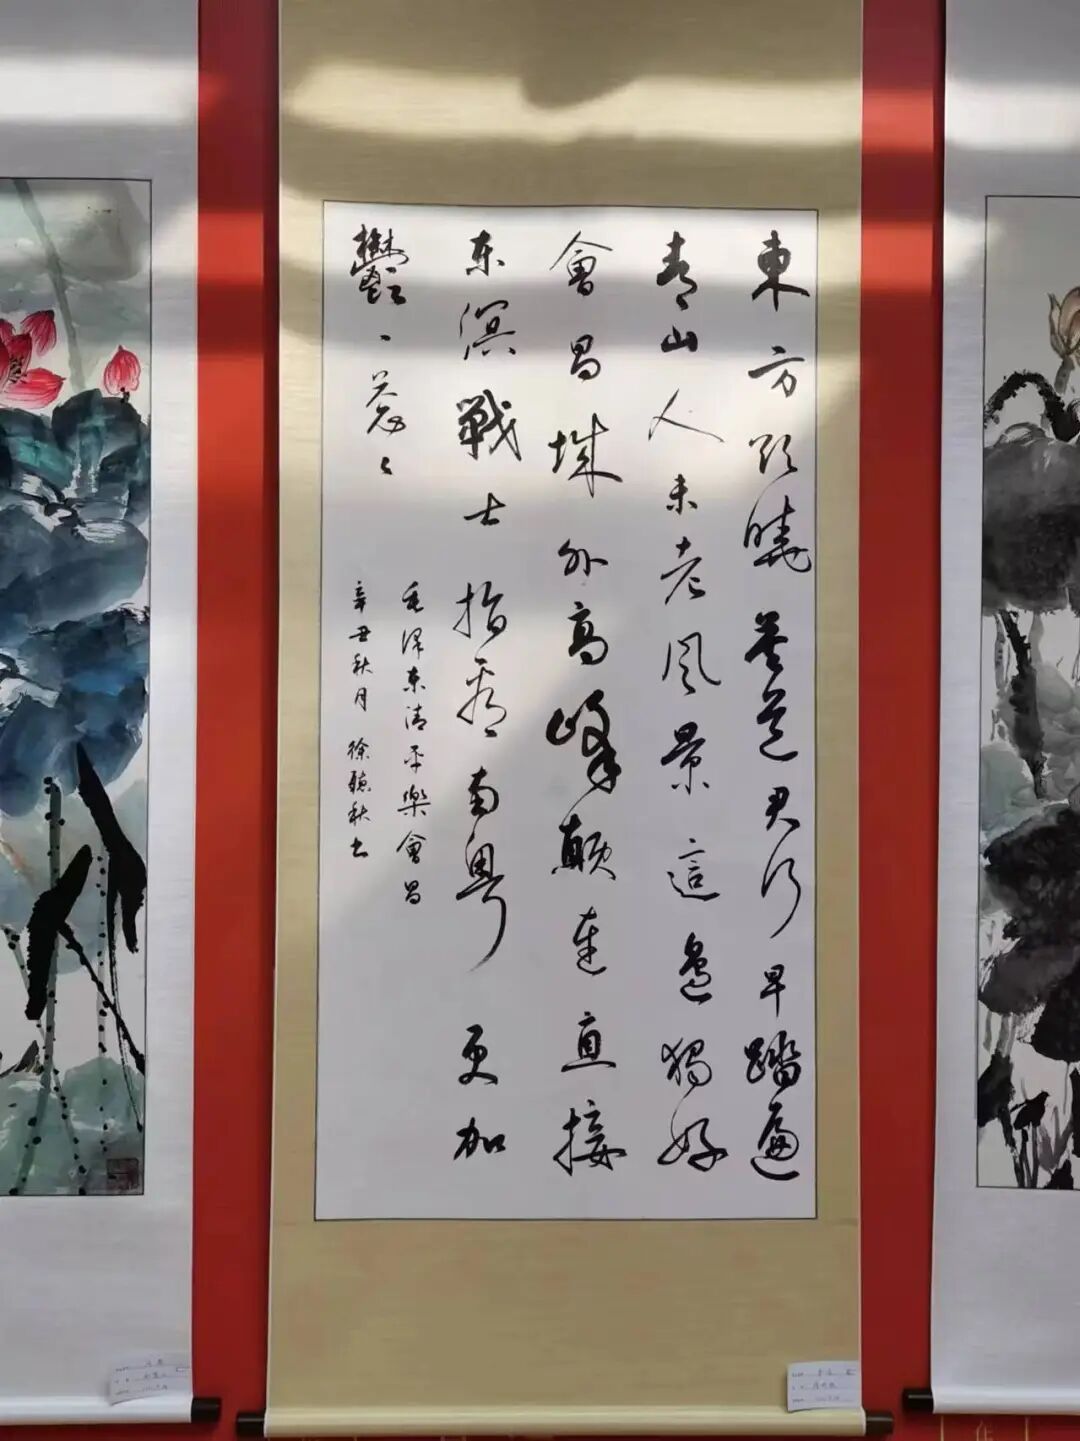 東方欲曉莫道君行早踏遍
青山人未老风景這邊獨好
會昌城外高峰顛連直接
东溟戰士指看南粤更加
鬱丶葱々
毛泽东清平樂會昌
辛丑秋月 徐秋书